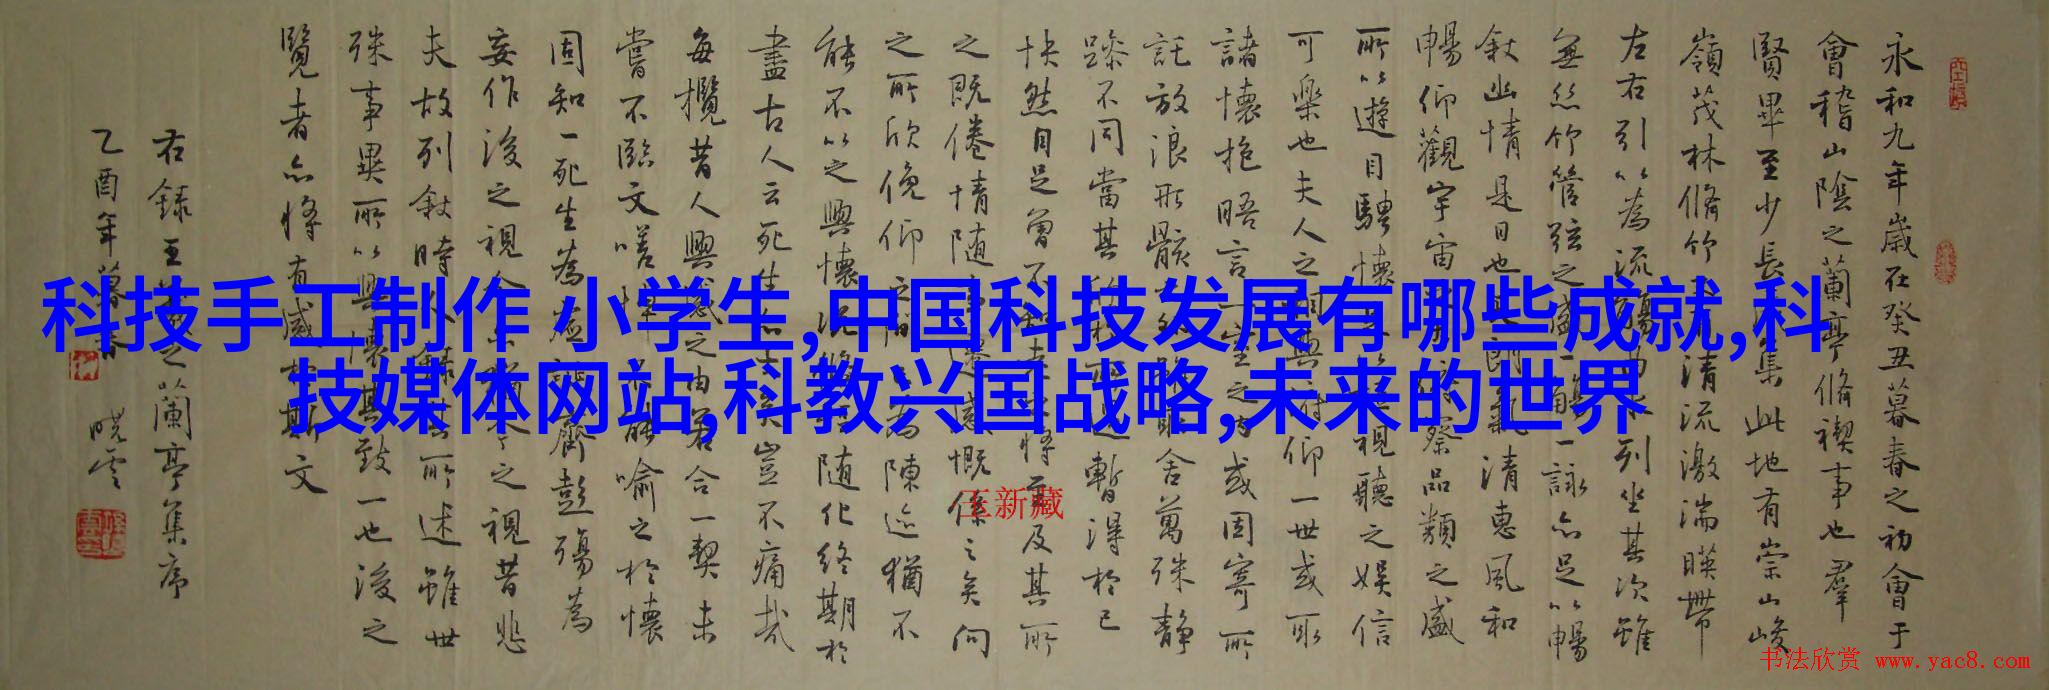 永和九年歲在癸丑暮春之初會于
會稽山陰之蘭亭脩禊事也群
賢畢至少長集此地有崇山峻
嶺茂林脩竹清流激湍暎帶
左右引以為流列坐其次雖
無絲竹管弦之盛一觴一詠亦足以暢
敘幽情是日也朗氣清惠風和
暢仰觀宇宙察品類之盛
所以遊目騁懷視聽之娛信
可樂也夫人之相與俯仰一世或取
諸懷抱晤言一室之內或因寄所
託放浪形骸舍萬殊靜
躁不同當其暫得於己
快然自足曾不將至及其所
之既倦情随遷感慨係之矣向
之所欣俛仰之為陳迹猶不
能不以之興懷况随化終期於
盡古人云死生亦大矣豈不痛哉
每攬昔人興感之由若合一契未
嘗不臨文嗟悼不能喻之於懷
固知一死生為虛誕齊彭殤為
妄作後之視今之視昔悲
夫故列敘時人所述雖世
殊事異所以興懷其致一也後之
覽者亦將有感於斯文
右録王之蘭亭集序
乙酉年暮春
曉雲
科技手工制作 小学生,中国科技发展有哪些成就,科
技媒体网站,科教兴国战略,未来的世界
王新藏
书法欣赏 www.yac8.com